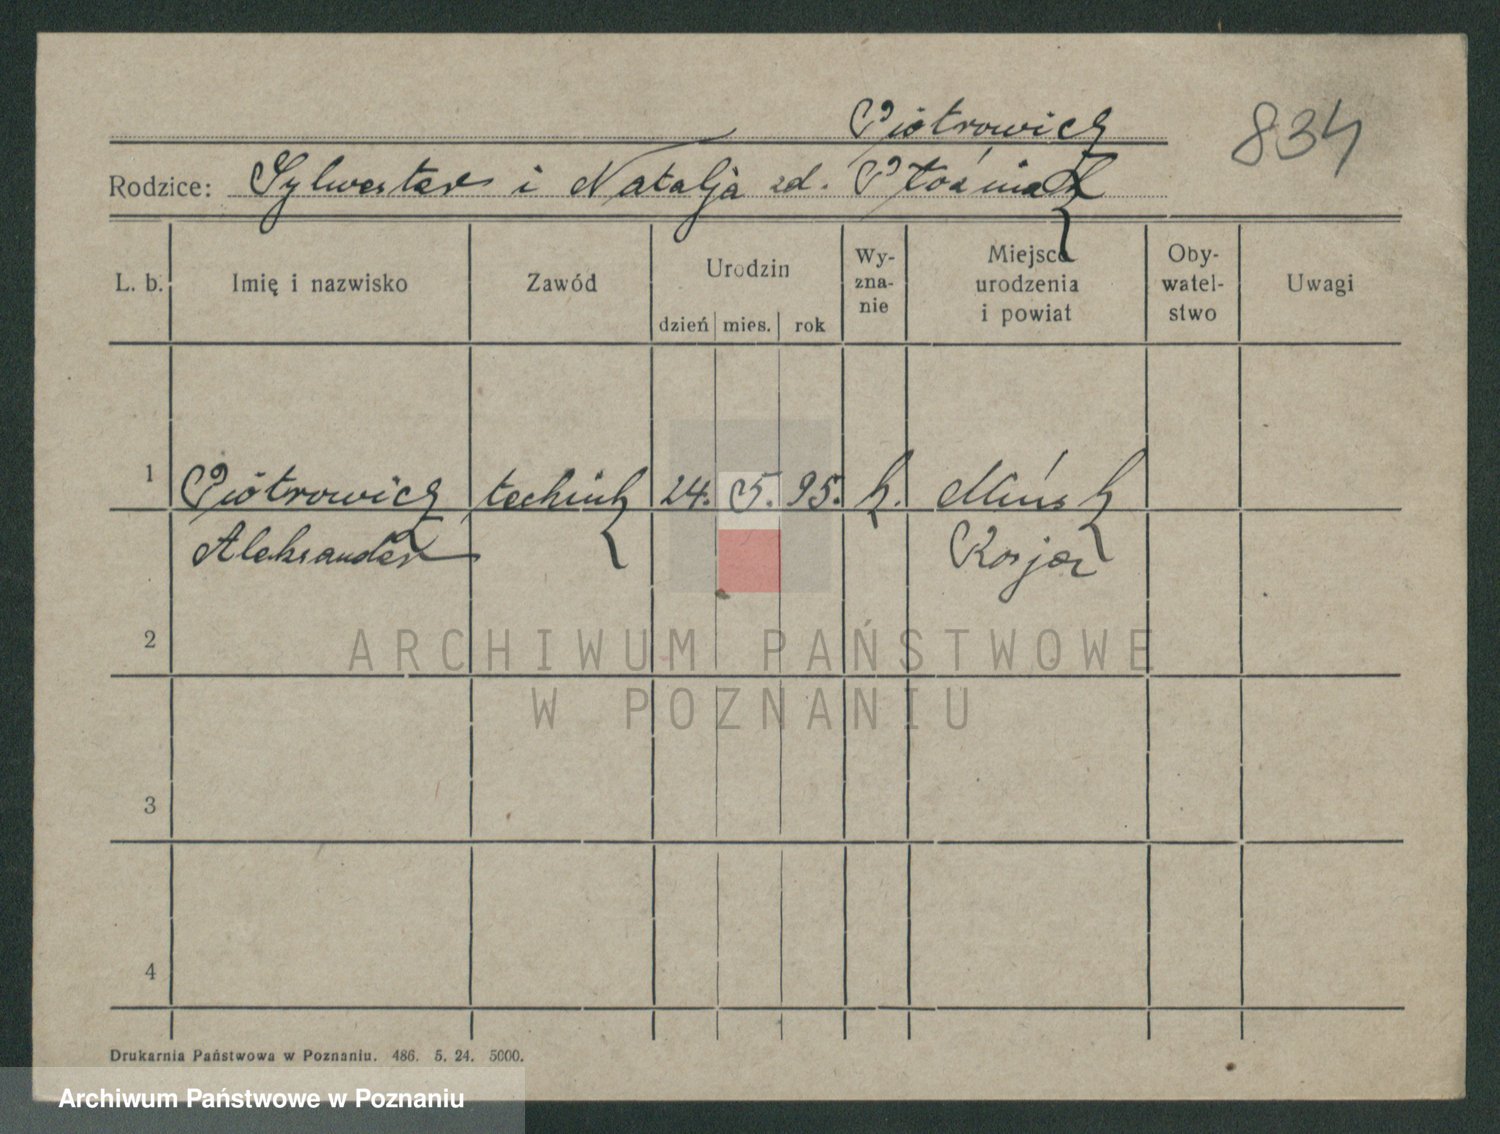 Piotrowicz
834
Rodzice: Sylwester i Natalja zd.
L. b. Imię i nazwisko Zawód Urodzin dzień mies. rok Wy- zna- nie Miejsce urodzenia i powiat Oby- watel- stwo Uwagi
1 Piotrowicz technik 24. 5. 95. k. Mińsk
Aleksander Rosja
2
ARCHIWUM PAŃSTWOWE
W POZNANIU
3
4
Drukarnia Państwowa w Poznaniu. 486. 5. 24. 5000.
Archiwum Państwowe w Poznaniu